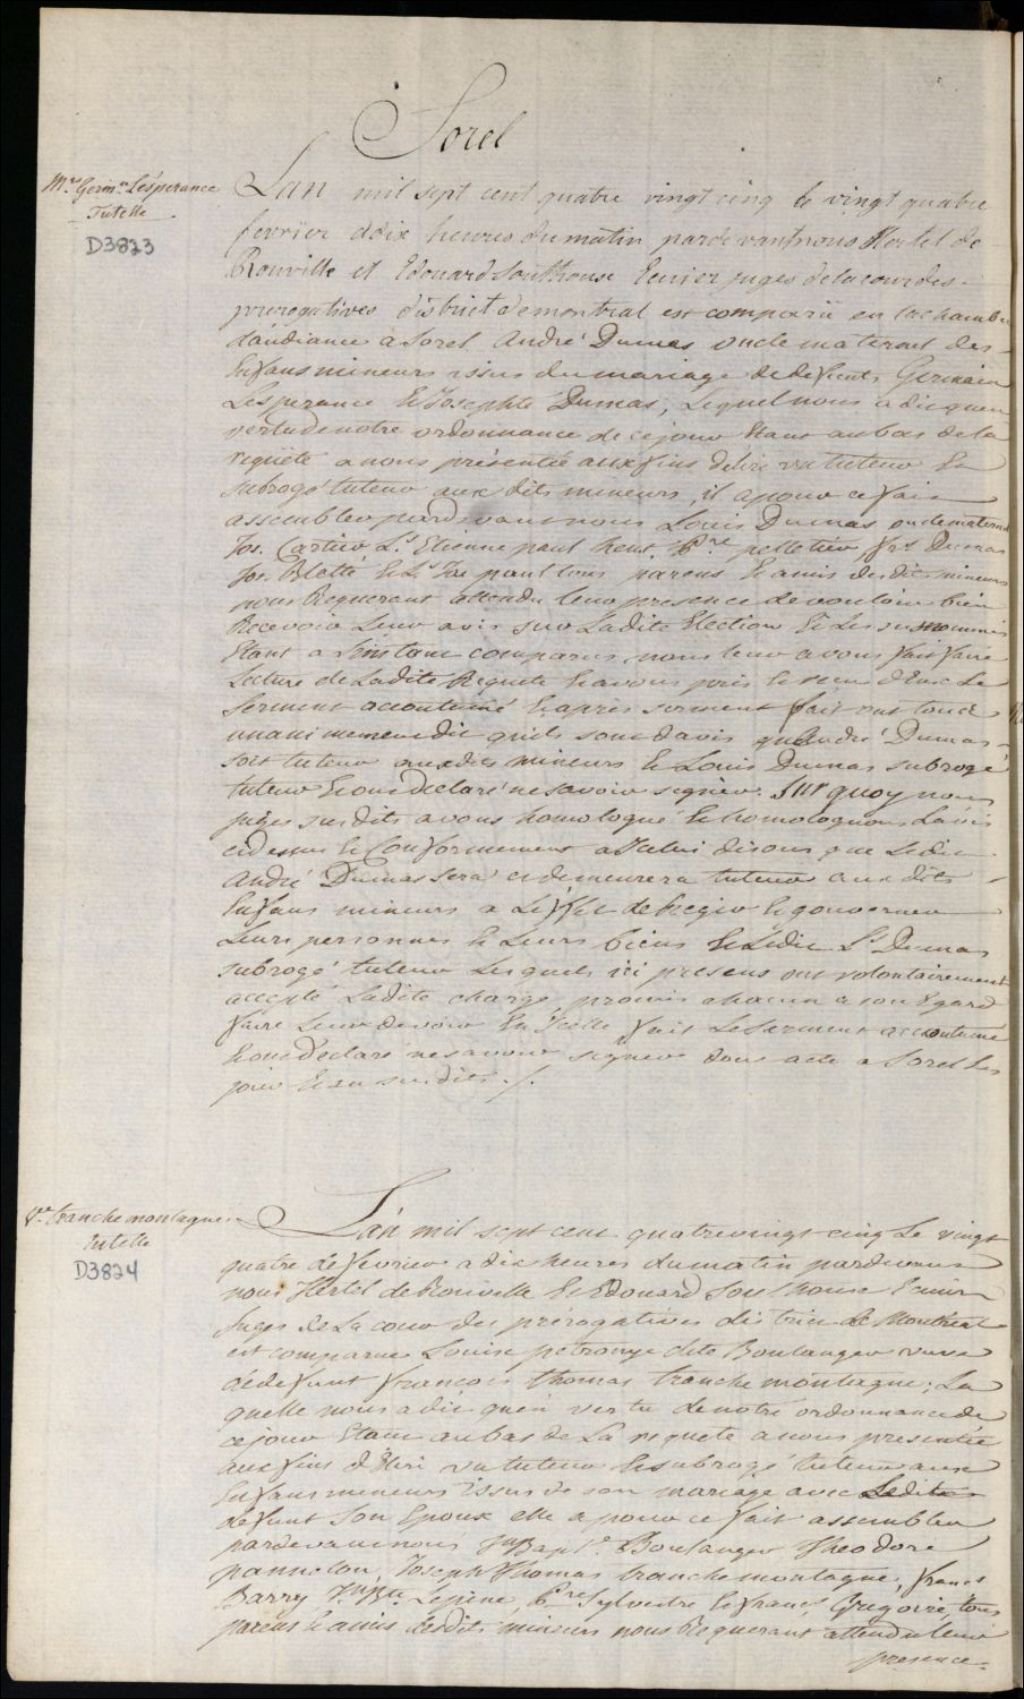 Sorel
Mrs Germn Lésperance
Tutelle
D3823
L'an mil sept cent quatre vingt cinq le vingt quatre
fevrier a dix heures du matin pardevant nous Hertel de
Rouville et Edouard Southouse Ecuier juges de la cour des
prerogatives district de montreal est comparü en la chambre
d'audiance a Sorel André Dumas oncle maternel des
Enfans mineurs issus du mariage de defunts Germain
Lesperance & Josephte Dumas, Lequel nous a dit quen
vertu de notre ordonnance de ce jour Etant au bas de la
requête a nous présentée aux fins d'élire un tuteur En
subrogé tuteur aux dits mineurs, il a pour ce fait
assembler pardevant nous Louis Dumas oncle maternel
Jos. Cartier Ls Etienne paul heut, Bre pelletier, frs Dumas
Jos. Bletté & Ls Jos paul tous parens & amis desdits mineurs
nous Requerant attendu leur presence de vouloir bien
Recevoir Leur avis sur Ladite Election & Les susnommés
Etant a L'instant comparus nous leur avons fait faire
Lecture de Ladite Requete & avons pris d'Eux Le
Serment accoutumé & apres serment fait ont tous
unanimement dit quils sont d'avis qu'André Dumas
soit tuteur auxdits mineurs & Louis Dumas subrogé
tuteur & ont declaré ne savoir signer. Sur quoy nous
juges susdits avons homologué & homologuons L'avis
cidessus & Conformement a Icelui disons que Ledit
André Dumas sera et demeurera tuteur aux dits
Enfans mineurs a L'effet de Regir & gouverner
Leurs personnes & Leurs biens & Ledit Ls Dumas
subrogé tuteur Lesquels ici presens ont volontairement
accepté Ladite charge, promis chacun a son Egard
faire Leur devoir En Icelle fait Le Serment accoutumé
& ont Declaré ne savoir signer dont acte a Sorel Les
jour & an susdits ./.
Ve tranchemontagne
Tutelle
D3824
L'an mil sept cent quatrevingt cinq Le vingt
quatre de fevrier a dix heures du matin pardevant
nous Hertel de Rouville & Edouard Southouse Ecuier
Juges de La cour des prérogatives district de Montréal
est comparue Louise petronye dite Boulanger veuve
de defunt françois thomas tranchemontagne, La
quelle nous a dit quen vertu de notre ordonnance de
ce jour Etant au bas de La requete a nous presentée
aux fins d'Elire un tuteur & subrogé tuteur aux
Enfans mineurs issus de son mariage avec Ledit
defunt Son Epoux elle a pour ce fait assembler
pardevant nous Jn Bapte Boulanger Theodore
pannelon, Joseph Thomas tranchemontagne, francs
Barry, Jn Bte Lepine, Bre Sylvestre & francs Grégoire, tous
parens & amis desdits mineurs nous Requerant attendu leur
presence